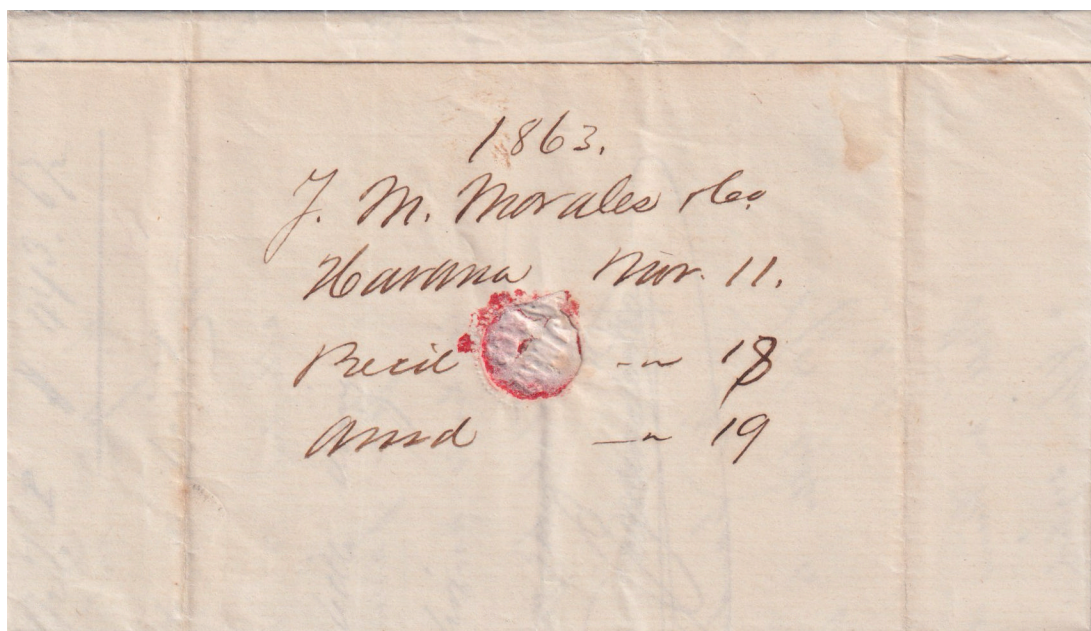 1863.
J. M. Morales & Co
Havana Nov. 11.
Recd — " 18
Ansd — " 19